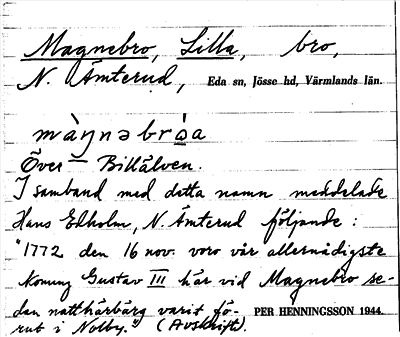 Magnebro, Lilla, bro,
N. Ämterud, Eda sn, Jösse hd, Värmlands län.
màŋnəbróa
Över Billälven.
I samband med detta namn meddelade
Hans Edholm, N. Ämterud följande:
"1772 den 16 nov. voro vår allernådigste
Konung Gustav III här vid Magnebro se-
dan natthärbärg varit fö-
rut i Nolby." (Avskrift).
PER HENNINGSSON 1944.